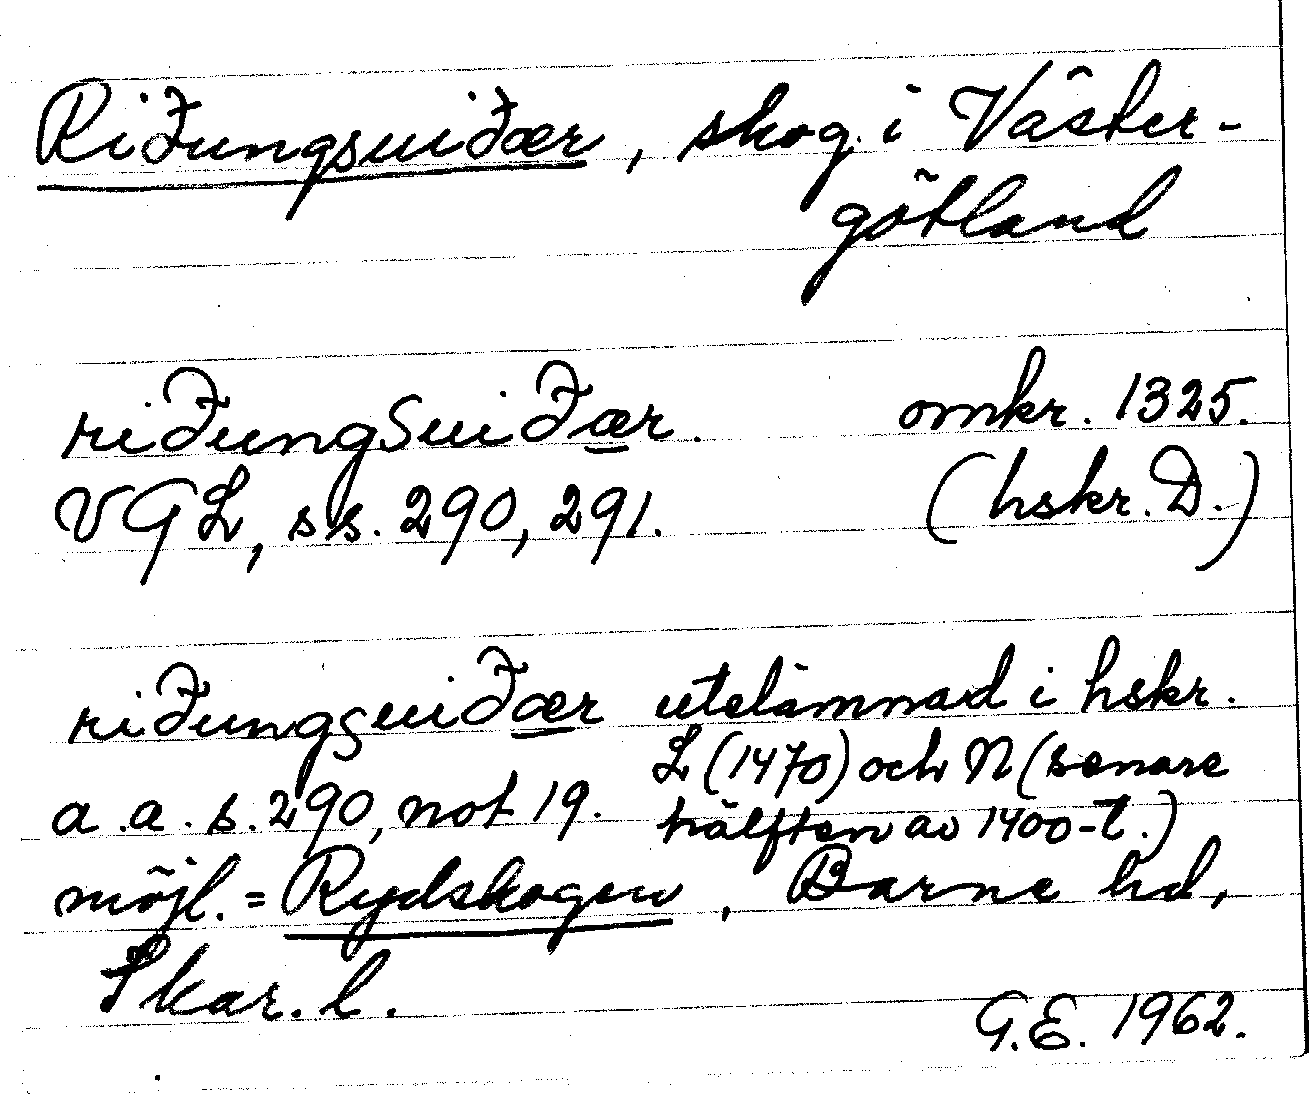 Riðungsuiðær, skog i Väster-
götland
riðungsuiðær. omkr. 1325.
VGL, ss. 290, 291. (hskr. D.)
riðungsuiðær utelämnad i hskr.
a.a. s. 290, not 19. L (1470) och N (senare
hälften av 1400-t.)
möjl. = Rydskogen, Barne hd,
Skar. l.
G.E. 1962.